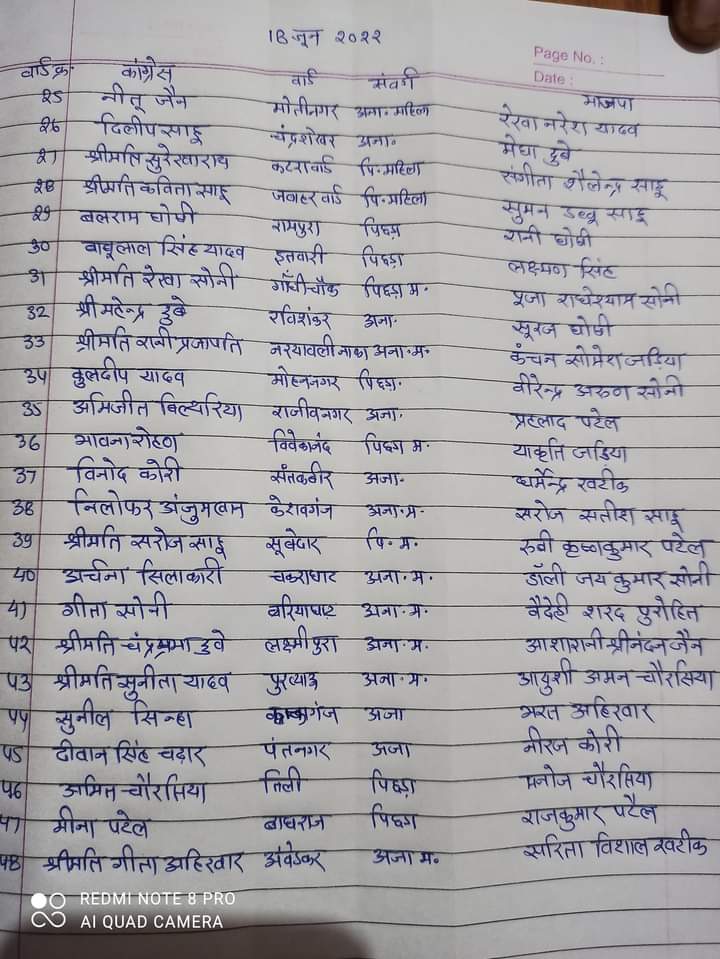 18 जून २०२२
Page No. :
Date :
वार्ड क्र. कांग्रेस वार्ड संवर्ग भाजपा
२5 नीतू जैन मोतीनगर अना. महिला रेखा नरेश यादव
२6 दिलीप साहू चंद्रशेखर अना. मेघा दुबे
२7 श्रीमति सुरेखा राय कटरा वार्ड पि. महिला संगीता शैलेन्द्र साहू
२8 श्रीमति कविता साहू जवाहर वार्ड पि. महिला सुमन डब्बू साहू
29 बलराम घोषी रामपुरा पिछड़ा रानी घोषी
30 बाबूलाल सिंह यादव इतवारी पिछड़ा लक्ष्मण सिंह
31 श्रीमति रेखा सोनी गाँधीचौक पिछड़ा म. पूजा राधेश्याम सोनी
32 श्री महेन्द्र दुबे रविशंकर अना. सूरज घोषी
33 श्रीमति रानी प्रजापति नरयावली नाका अना. म. कंचन सोमेश जड़िया
34 कुलदीप यादव मोहननगर पिछड़ा. वीरेन्द्र अरुण सोनी
35 अभिजीत राजीवनगर अना. प्रहलाद पटेल
36 भावना रोहण विवेकानंद पिछड़ा म. याकृति जड़िया
37 विनोद कोरी संतकबीर अजा. धर्मेन्द्र खटीक
38 निलोफर अंजुम खान केशवगंज अना. म. सरोज सतीश साहू
39 श्रीमति सरोज साहू सूबेदार पि. म. रुबी कृष्णकुमार पटेल
40 अर्चना सिलाकारी चकराघाट अना. म. डॉली जय कुमार सोनी
41 गीता सोनी बरियाघाट अना. म. वैदेही शरद पुरोहित
42 श्रीमति चंद्रप्रभा दुबे लक्ष्मीपुरा अना. म. आशारानी श्रीनंदन जैन
43 श्रीमति सुनीता यादव पुरव्याऊ अना. म. आयुशी अमन चौरसिया
44 सुनील सिन्हा अजा भरत अहिरवार
45 दीवान सिंह चढ़ार पंतनगर अजा नीरज कोरी
46 अमित चौरसिया तिली पिछड़ा मनोज चौरसिया
47 मीना पटेल बाघराज पिछड़ा राजकुमार पटैल
48 श्रीमति गीता अहिरवार अंबेडकर अजा म. सरिता विशाल खटीक
REDMI NOTE 8 PRO
AI QUAD CAMERA